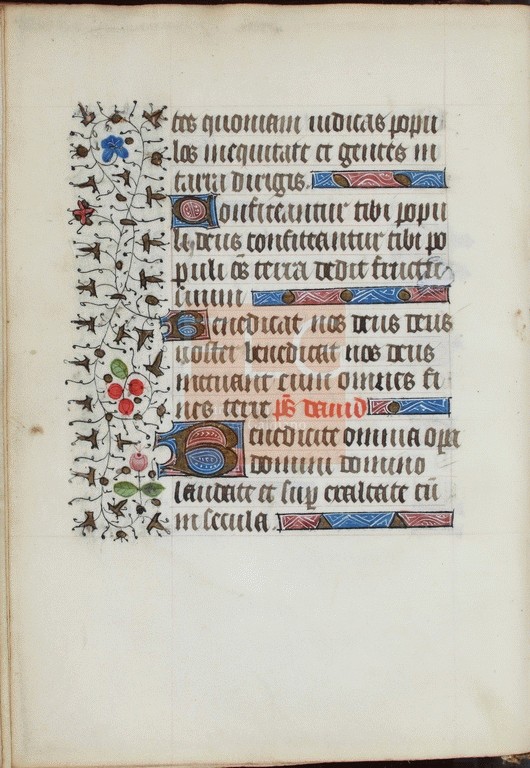 tes quoniam iudicas popu
los in equitate et gentes in
terra dirigis.
Confiteantur tibi popu
li deus confiteantur tibi po
puli oēs terra dedit fructū
suum
Benedicat nos deus deus
noster benedicat nos deus
metuant eum omnes fi
nes terre ps dauid
Benedicite omnia opa
domini domino
laudate et sup exaltate eū
in secula